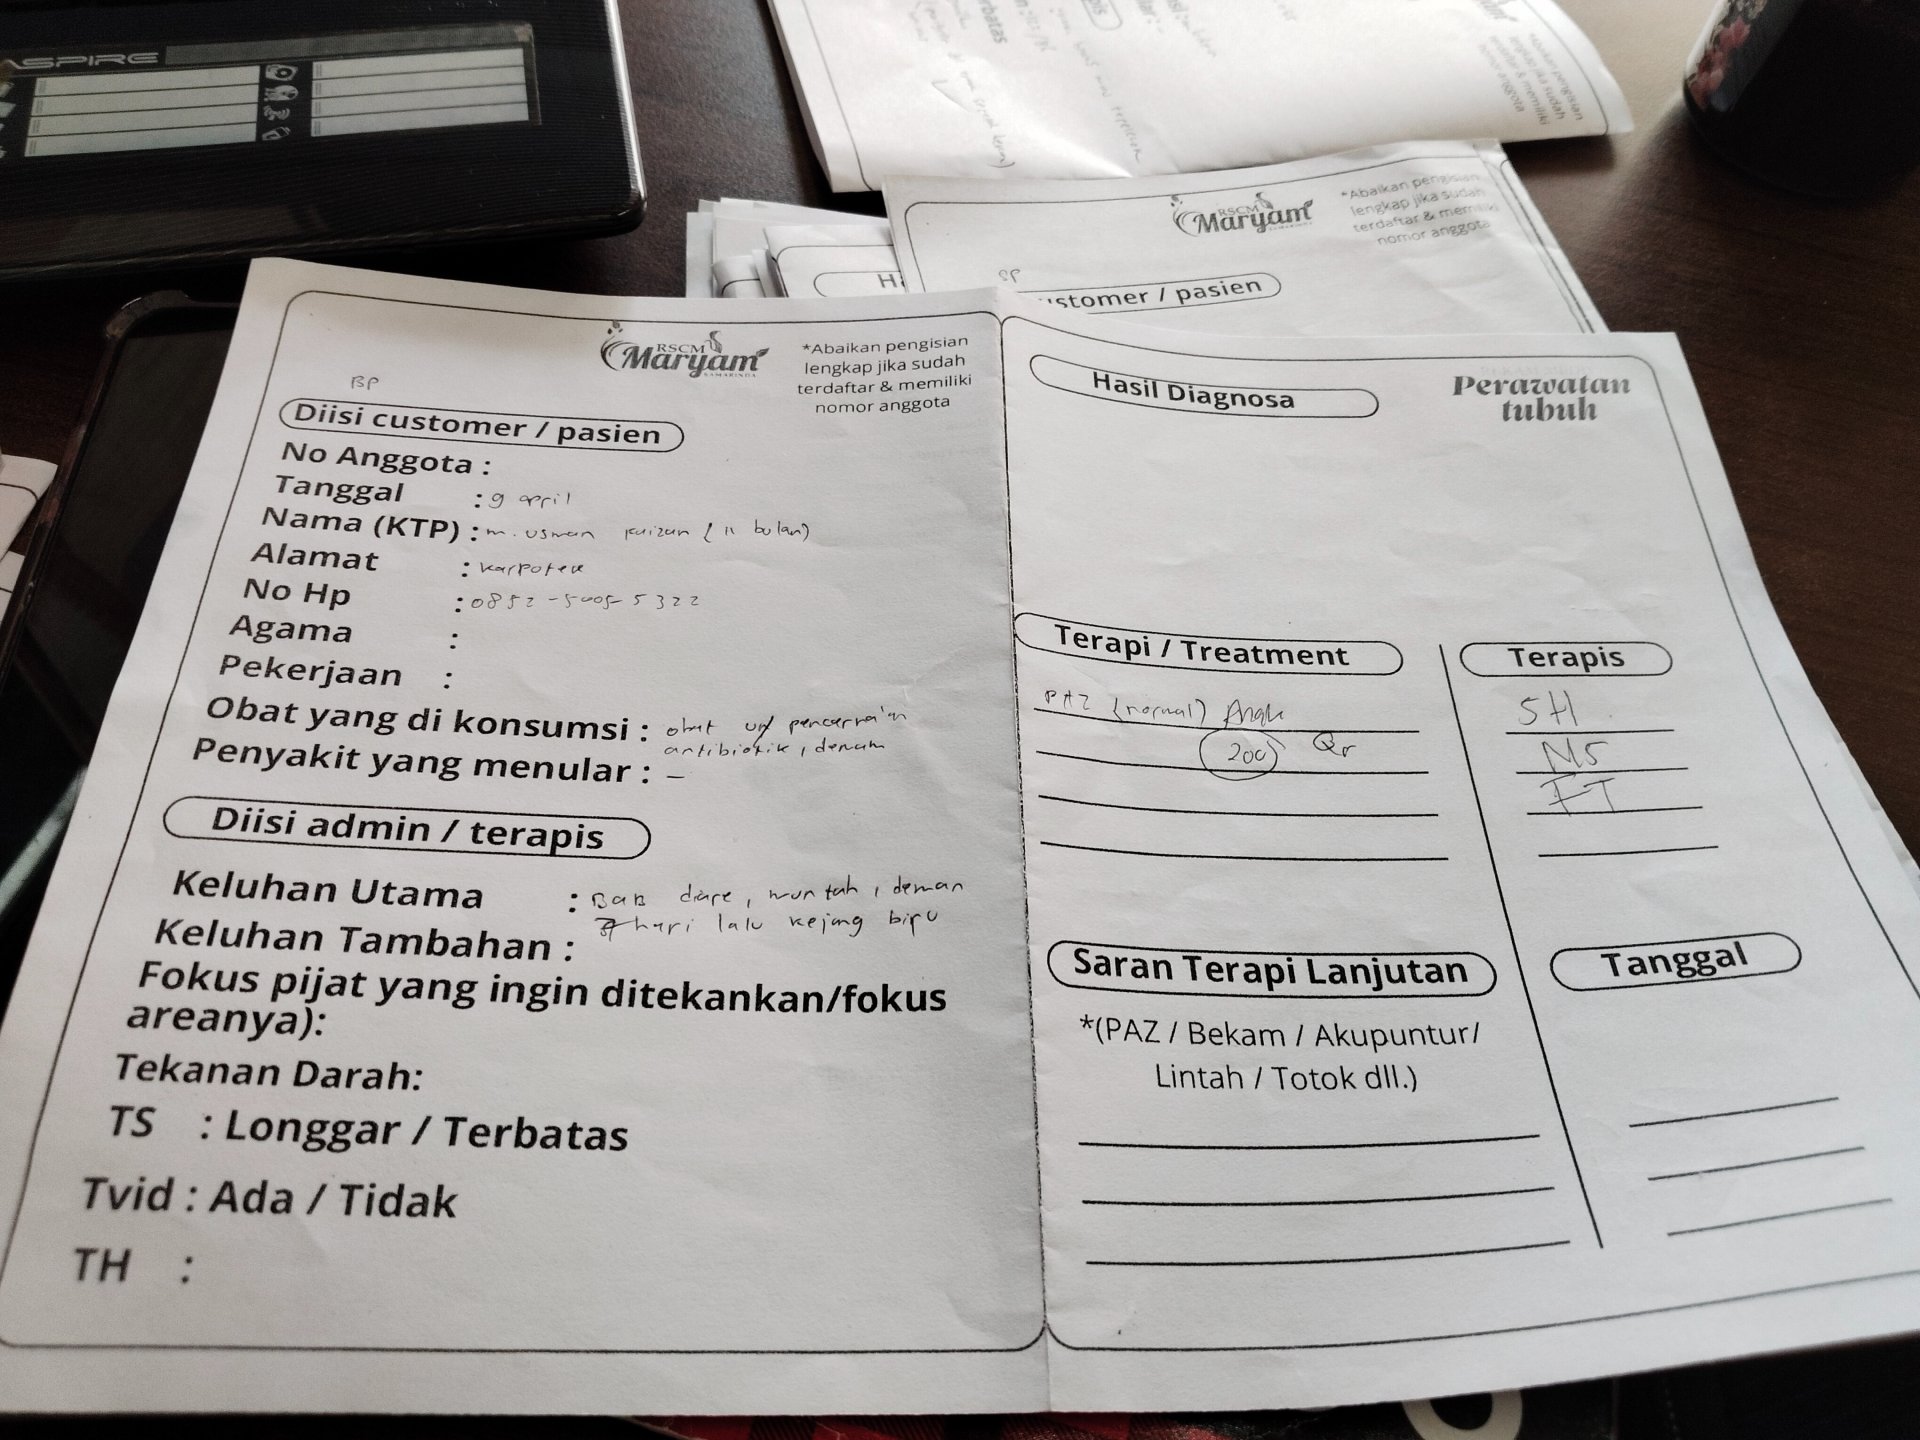 ASPIRE
RSCM
Maryam
SAMARINDA
*Abaikan pengisian
lengkap jika sudah
terdaftar & memiliki
nomor anggota
customer / pasien
RSCM
Maryam
SAMARINDA
*Abaikan pengisian
lengkap jika sudah
terdaftar & memiliki
nomor anggota
BP
Diisi customer / pasien
No Anggota :
Tanggal : 9 april
Nama (KTP) : m. usman (11 bulan)
Alamat :
No Hp : 0852-5005-5322
Agama :
Pekerjaan :
Obat yang di konsumsi : obat
antibiotik, demam
Penyakit yang menular : –
Diisi admin / terapis
Keluhan Utama : BAB diare, muntah, deman
hari lalu kejang
Keluhan Tambahan :
Fokus pijat yang ingin ditekankan/fokus
areanya):
Tekanan Darah:
TS : Longgar / Terbatas
Tvid : Ada / Tidak
TH :
Hasil Diagnosa
Perawatan
tubuh
Terapi / Treatment
PAZ (normal) Anak
200 Qr
Terapis
SH
NS
FT
Saran Terapi Lanjutan
*(PAZ / Bekam / Akupuntur/
Lintah / Totok dll.)
Tanggal